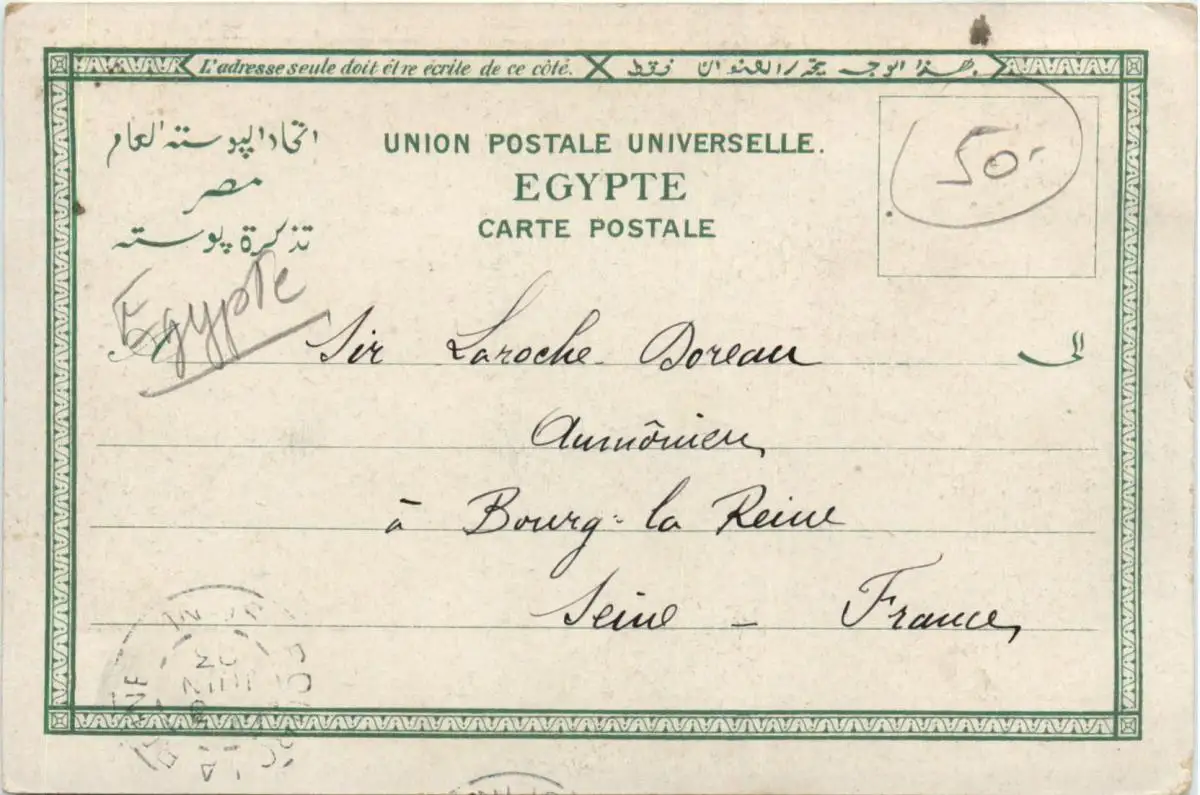 L'adresse seule doit être écrite de ce côté. هذا الوجه يحرر العنوان فقط
اتحاد البوسته العام
مصر
تذكرة بوسته
UNION POSTALE UNIVERSELLE.
EGYPTE
CARTE POSTALE
50
Egypte
Sir Laroche Doreau
الى
Aumônier
à Bourg-la Reine
Seine - France